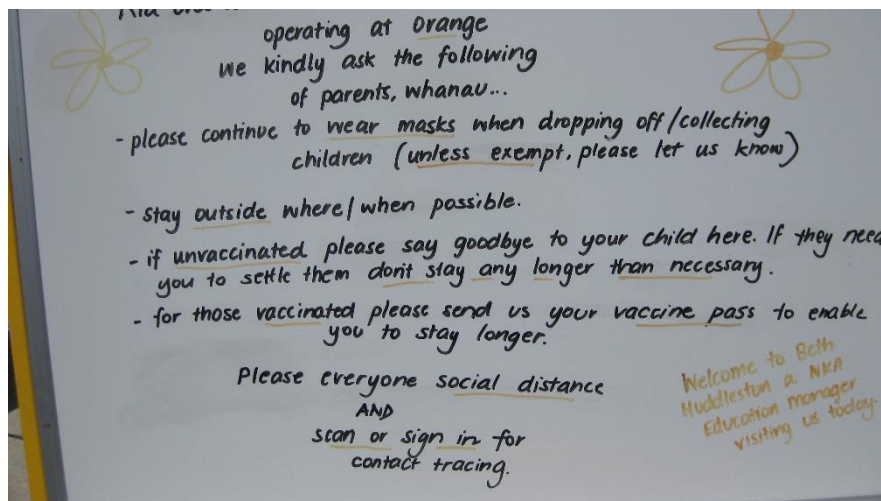 operating at orange
we kindly ask the following
of parents, whanau...
- please continue to wear masks when dropping off/collecting
children (unless exempt, please let us know)
- stay outside where/when possible.
- if unvaccinated please say goodbye to your child here. If they need
you to settle them dont stay any longer than necessary.
- for those vaccinated please send us your vaccine pass to enable
you to stay longer.
Please everyone social distance
AND
scan or sign in for
contact tracing.
Welcome to Beth
Huddleston a NKA
Education manager
visiting us today.